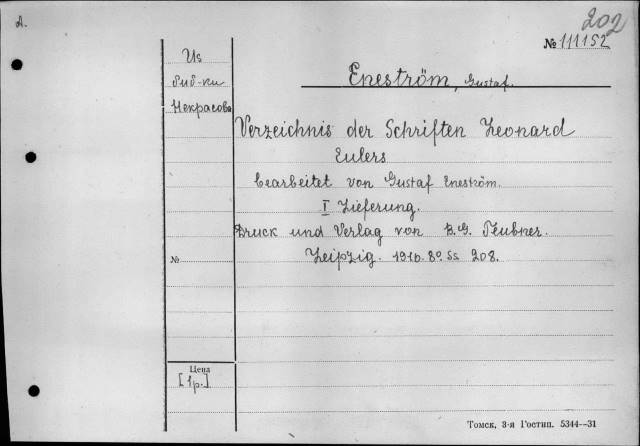 A.
202
№ 111152
Из
биб-ки
Некрасова
Eneström, Gustaf.
Verzeichnis der Schriften Leonard
Eulers
bearbeitet von Gustaf Eneström.
I Lieferung.
Druck und Verlag von B. G. Teubner.
Leipzig. 1910. 8º. Ss. 208.
№
Цена
[1р.]
Томск, 3-я Гостип. 5344—31